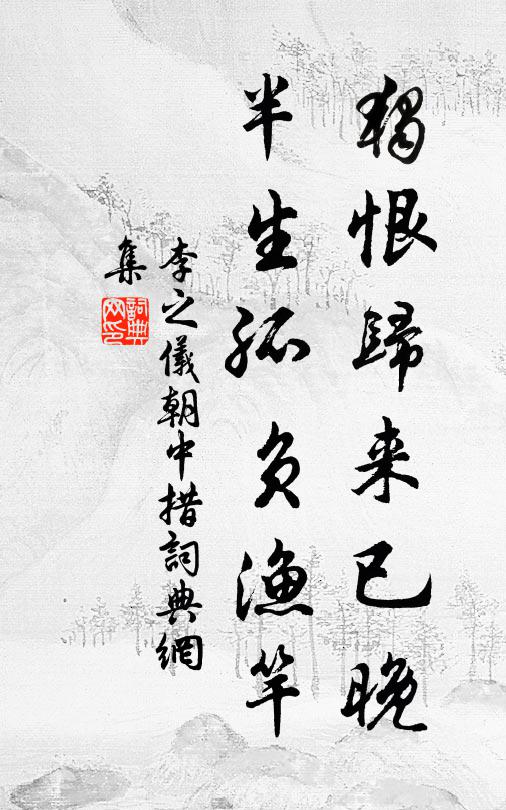 獨恨歸来已晚
半生孤负漁竿
李之儀朝中措詞典網
集
詞典
网印